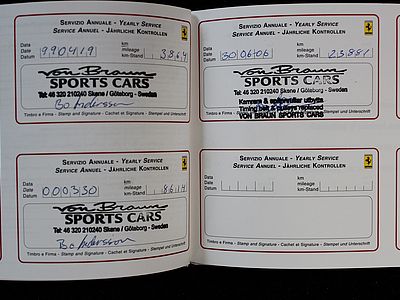 SERVIZIO ANNUALE - YEARLY SERVICE
SERVICE ANNUEL - JÄHRLICHE KONTROLLEN
Data
Date
Datum
990419
km
mileage
km-Stand
3864
von Braun
SPORTS CARS
Tel: 46 320 210240 Skene / Göteborg - Sweden
Bo Andersson
Timbro e Firma - Stamp and Signature - Cachet et Signature - Stempel und Unterschrift
SERVIZIO ANNUALE - YEARLY SERVICE
SERVICE ANNUEL - JÄHRLICHE KONTROLLEN
Data
Date
Datum
000330
km
mileage
km-Stand
8614
von Braun
SPORTS CARS
Tel: 46 320 210240 Skene / Göteborg - Sweden
Bo Andersson
Timbro e Firma - Stamp and Signature - Cachet et Signature - Stempel und Unterschrift
SERVIZIO ANNUALE - YEARLY SERVICE
SERVICE ANNUEL - JÄHRLICHE KONTROLLEN
Data
Date
Datum
300606
km
mileage
km-Stand
23881
von Braun
SPORTS CARS
Tel: 46 320 210240 Skene / Göteborg - Sweden
Kamrem & spännrullar utbytta
Timing belt & rollers replaced
VON BRAUN SPORTS CARS
Timbro e Firma - Stamp and Signature - Cachet et Signature - Stempel und Unterschrift
SERVIZIO ANNUALE - YEARLY SERVICE
SERVICE ANNUEL - JÄHRLICHE KONTROLLEN
Data
Date
Datum
km
mileage
km-Stand
Timbro e Firma - Stamp and Signature - Cachet et Signature - Stempel und Unterschrift